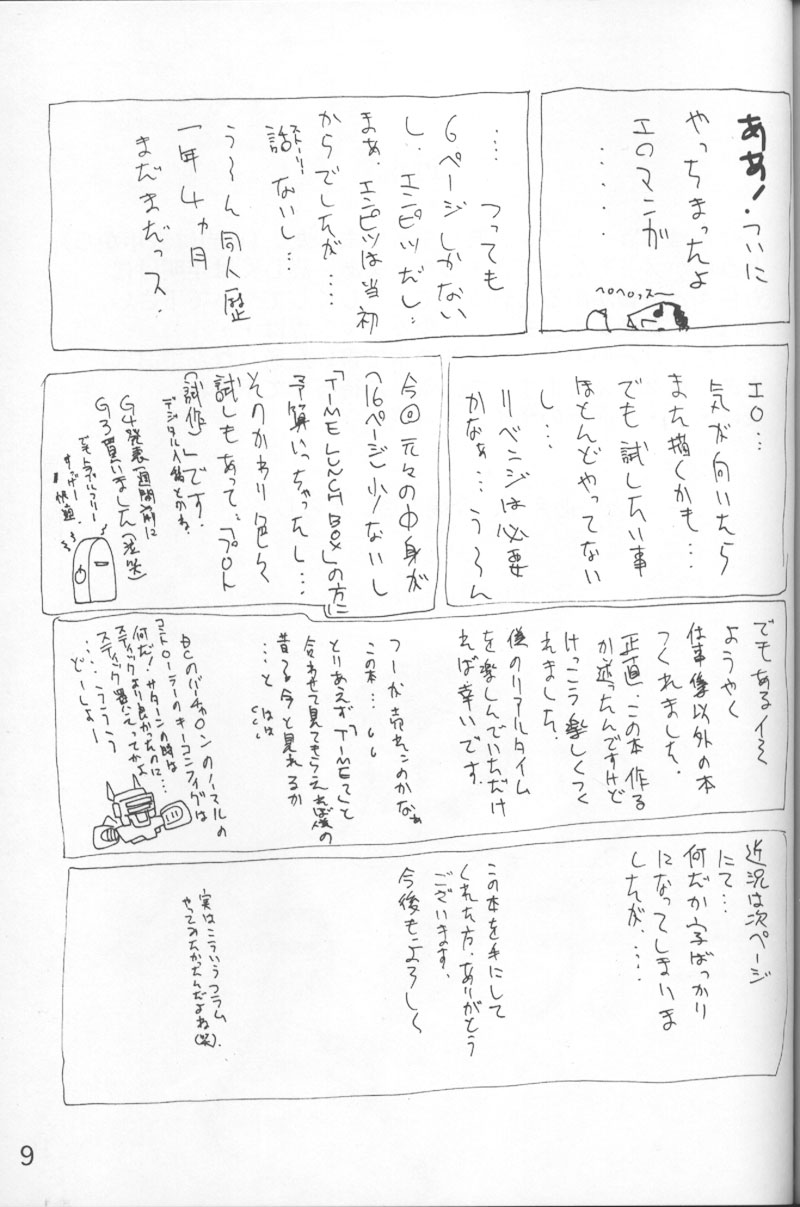 ああ!ついに
やっちまったよ
エロマンガ
・・・・・
ヘロヘロッス〜
… つっても
6ページしかない
し、エンピツだし…
まぁ、エンピツは当初
からでしたが……
話ストーリー ないし…
う〜ん同人歴
一年4ヵ月
まだまだっス.
エロ…
気が向いたら
また描くかも…
でも試したい事
ほとんどやってない
し…
リベンジは必要
かなぁ…う〜ん
今回元々の中身が
(16ページ)少ないし
「TIME LUNCH BOX」の方に
予算いっちゃったし…
そのかわり色々
試しもあって…「プロト
(試作)」です.
デジタル入稿とかね.
G4発表一週間前に
G3買いました(泣笑)
でもトラブルフリー
すっげー
快適
でもあるイミ
ようやく
仕事像以外の本
つくれました.
正直、この本作る
か迷ったんですけど
けっこう楽しくつく
れました.
僕のリアルタイム
を楽しんでいただけ
れば幸いです.
つーか売れんのかなぁ
この本…
とりあえず「TIMEて」と
合わせて見てもらえれば僕の
昔る今と見れるか
…と はは
DCのバーチャロンのノーマルの
コントローラーのキーコンフィグは
何だ! サターンの時は
スティックより良かったのに…
スティック買いえってかよ
……うううう
どーしよー
近況は次ページ
にて…
何だか字ばっかり
になってしまいま
したが、……
この本を手にして
くれた方、ありがとう
ございます.
今後もよろしく
実はこういうコラム
やってみたかったんだよね(笑).
9